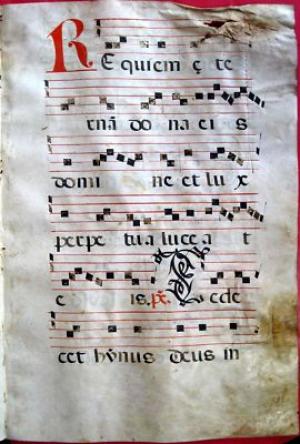 REquiem ę te
rnā do na ei s
domi ne et lu x
perpe tua lucea t
e is. ps. Te dē
cet hỹnus deus in